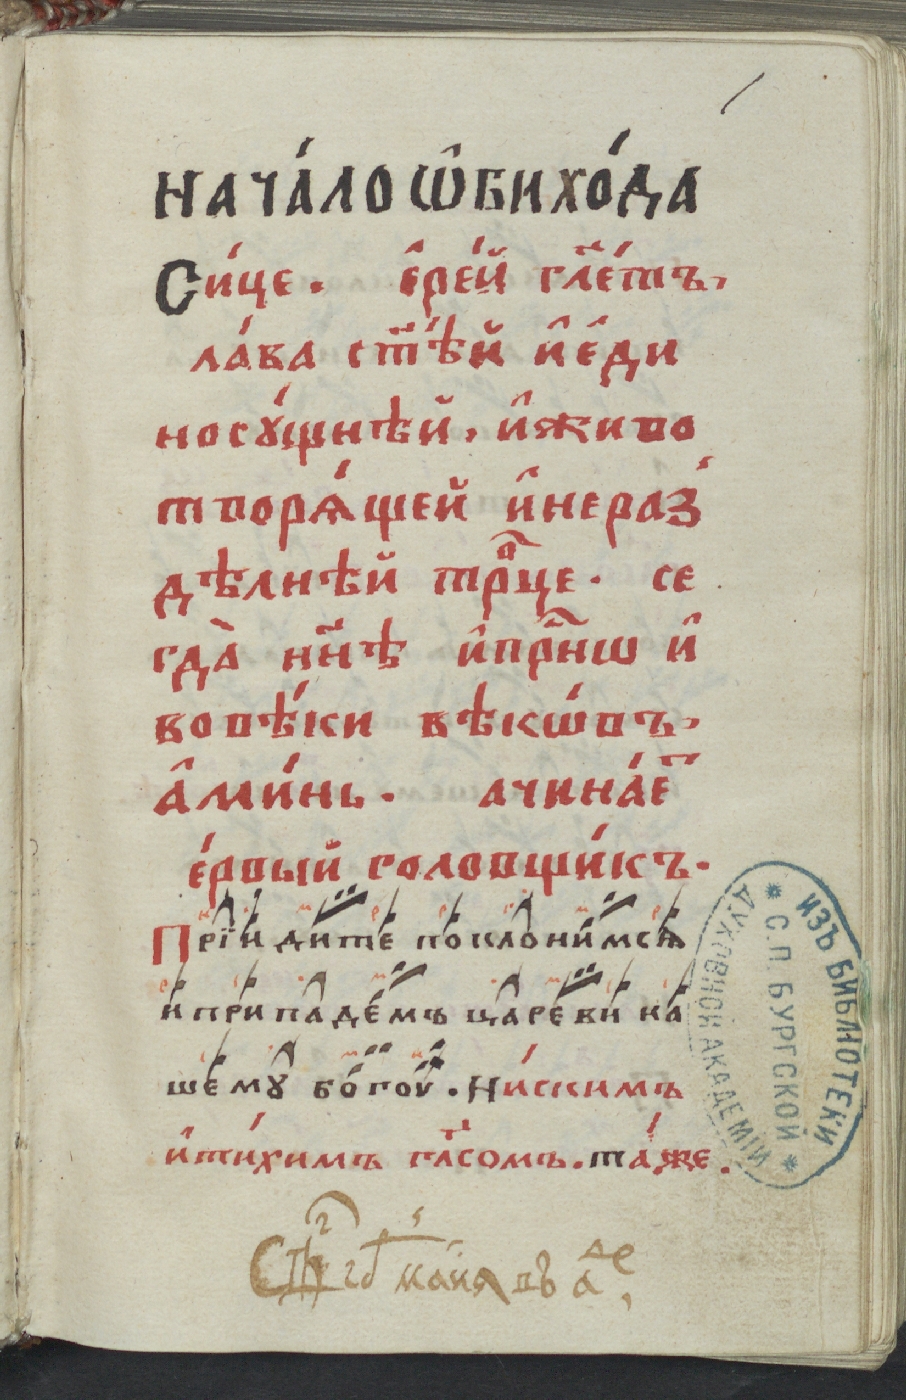 нача́ло ѡ҆бихо́да
Си́це. е҆ре́й гл҃е́тъ,
ла́ва ст҃ѣ́й и҆ е҆ди
носу́щнѣй, и҆ живо
творѧ́щей и҆ нераз̾
дѣ́лнѣй трⷪ҇це. се
гда̀ нн҃ѣ и҆ прⷭ҇нѡ и҆
вовѣ́ки вѣкѡ́въ,
а҆ми́нь. ачина́еⷮ
е́рвый головщи́къ.
Прїиди́те поклони́мсѧ
и҆ припаде́мъ царе́ви на́
шему бо́гоу. Ни́скимъ
и҆ ти́химъ гл҃сомъ. та́же.
маиѧ въ а
ИЗЪ БИБЛIОТЕКИ
С.П.БУРГСКОЙ
ДУХОВНОЙ АКАДЕМIИ